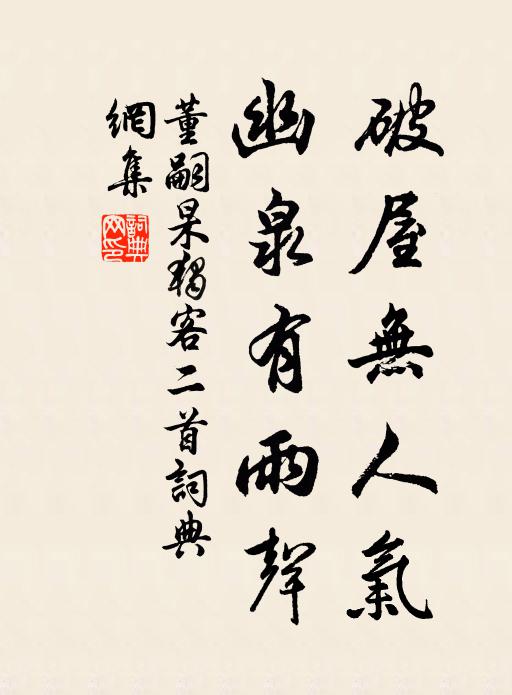 破屋無人氣
幽泉有雨聲
董嗣杲獨客二首詞典
網集
詞典
網印